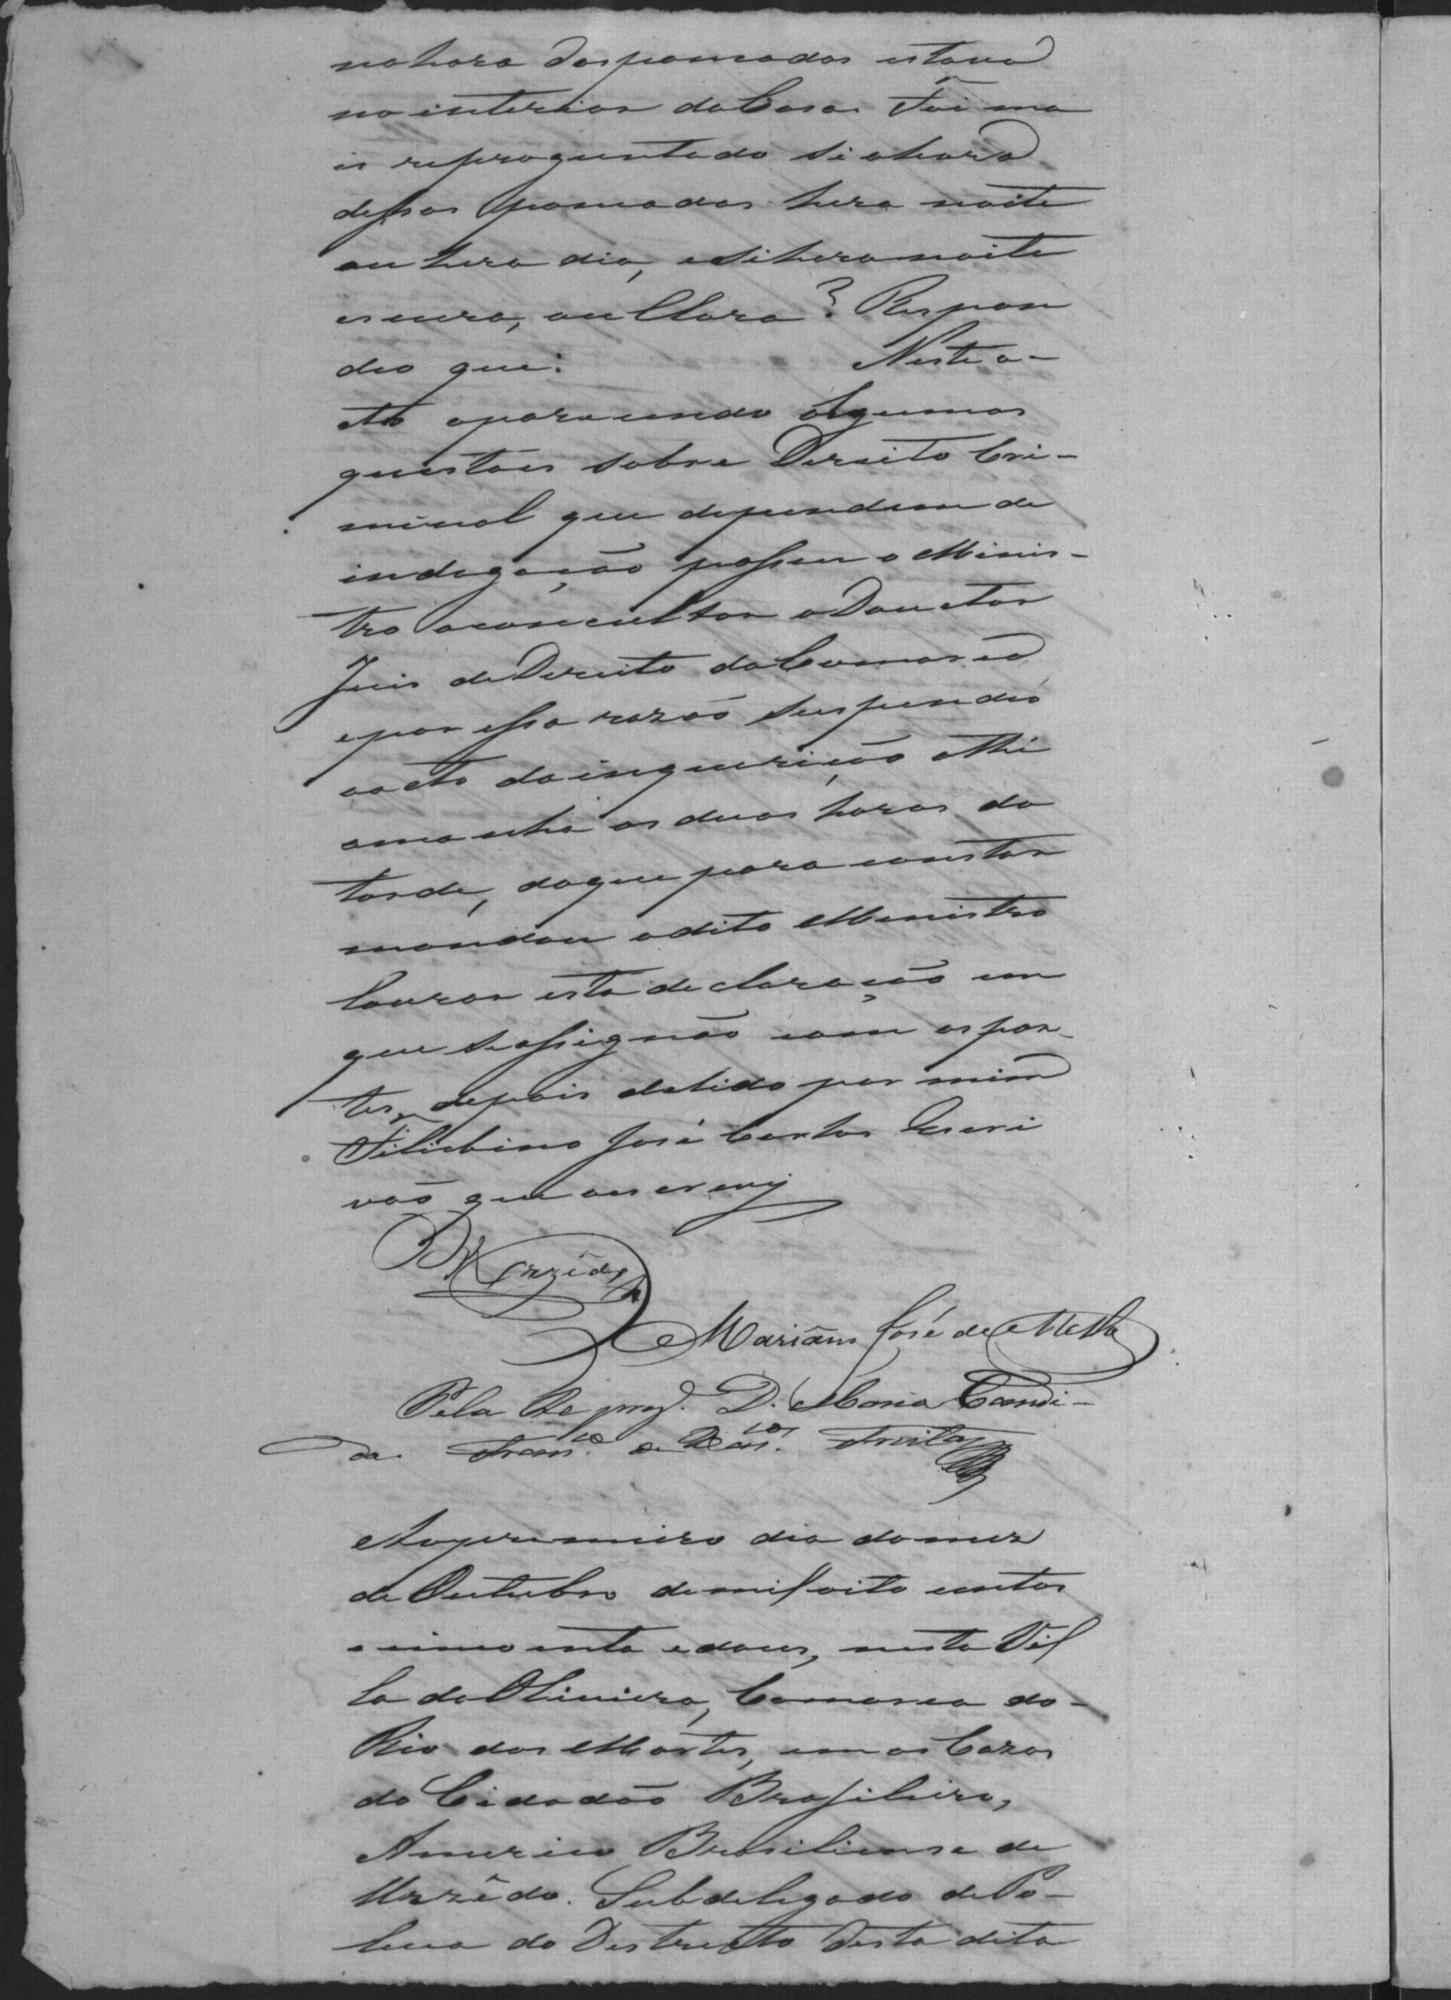 nahora das pancadas estava
no interior da Casa. Foi ma
is reproguntado si ahora
dessas pancadas hera noite
ou hera dia, e si hera noite
escura, ou Clara? Respon
deo que: Neste a-
cto aparecendo algumas
questões sobre Dereito Cri-
minal que dependem de
indagação passou o Minis-
tro a concultar o Douctor
Juis de Dereito da Comarca
e por essa razaõ suspendeo
o acto da inquerição athé
amanha as duas horas da
tarde, do que para constar
mandou o dito Menistro
lavrar esta declaração em
que se assignão com as par-
tes, depois de lido por mim
Felisbino José Cantos Escri
vaõ que o escrevy
Urzêdo
Mariâno José de Mello
Pela Re prez. D. Maria Candi-
da. Franco. de Freitas
Ao premeiro dia do mez
de Outubro de mil oito centos
e cincoenta e dous, nesta Vil
la da Oliveira, Comarca do-
Rio das Mortes, em as Cazas
do Cidadaõ Brasileiro,
Americo Brasiliense de
Urzêdo. Subdelegado de Po-
lecia do Destrecto desta dita